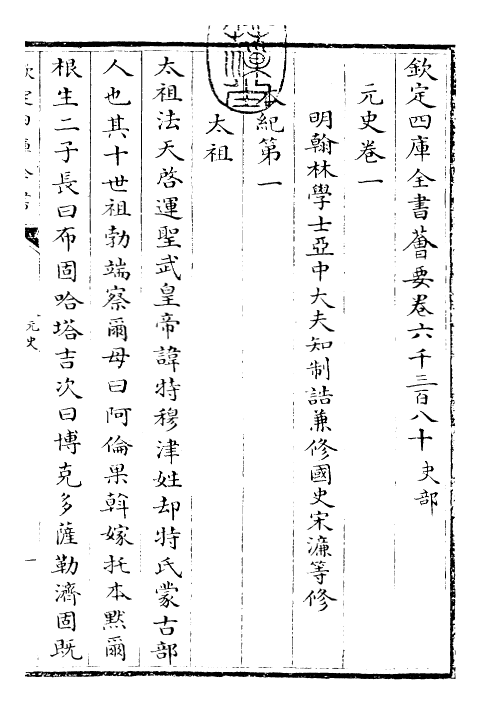 欽定四庫全書薈要卷六千三百八十 史部
元史卷一
明翰林學士亞中大夫知制誥兼修國史宋濂等修
本紀第一
太祖
太祖法天啓運聖武皇帝諱特穆津姓却特氏蒙古部
人也其十世祖勃端察爾母曰阿倫果斡嫁托本默爾
根生二子長曰布固哈塔吉次曰博克多薩勒濟固既
元史
一